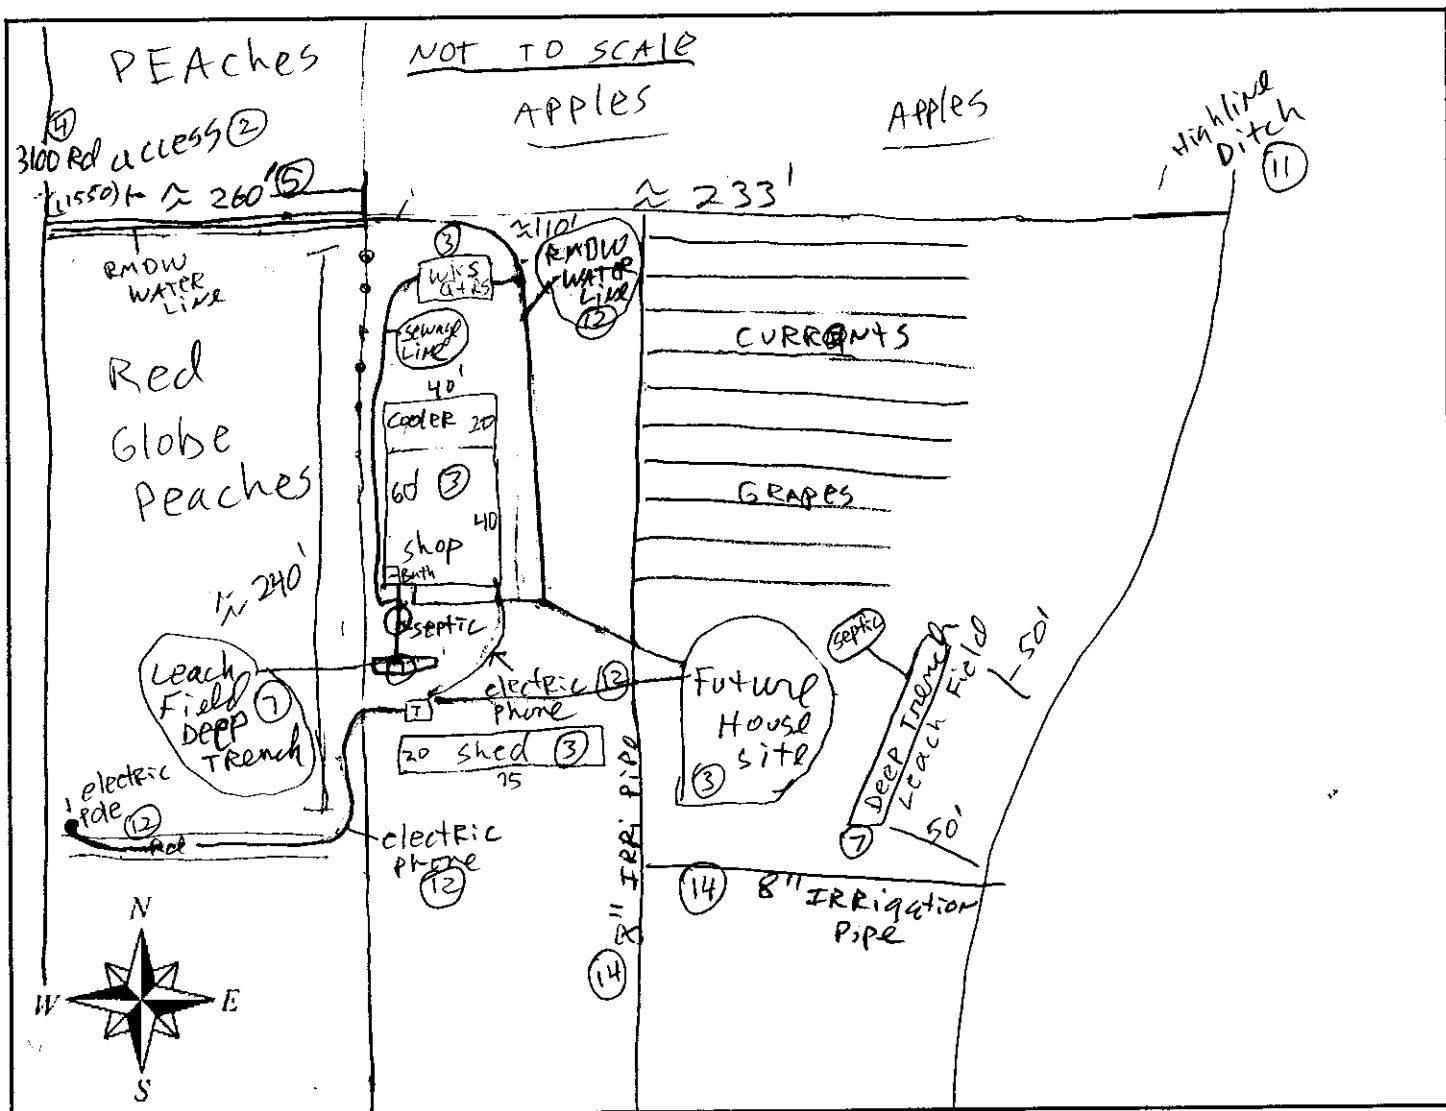 PEAches
NOT TO SCALE
APPles
Apples
Highline
Ditch
11
4
3100 Rd access 2
≈ 260' 5
≈ 233'
RMDW
WATER
Line
≈110'
3
RMDW
WATER
Line
12
sewage
Line
CURRENTS
Red
Globe
Peaches
40'
Cooler 20
60' 3
40
shop
Bath
GRAPES
≈ 240'
septic
Leach
Field 7
Deep
TRench
electric 12
phone
T
20 shed 3
75
Future
House
site
3
septic
Deep Trench
Leach Field
50'
50'
7
electric
pole 12
Rd
electric
phone
12
8" IRRi PiPe
14
14 8" IRRigation
Pipe
N
W E
S